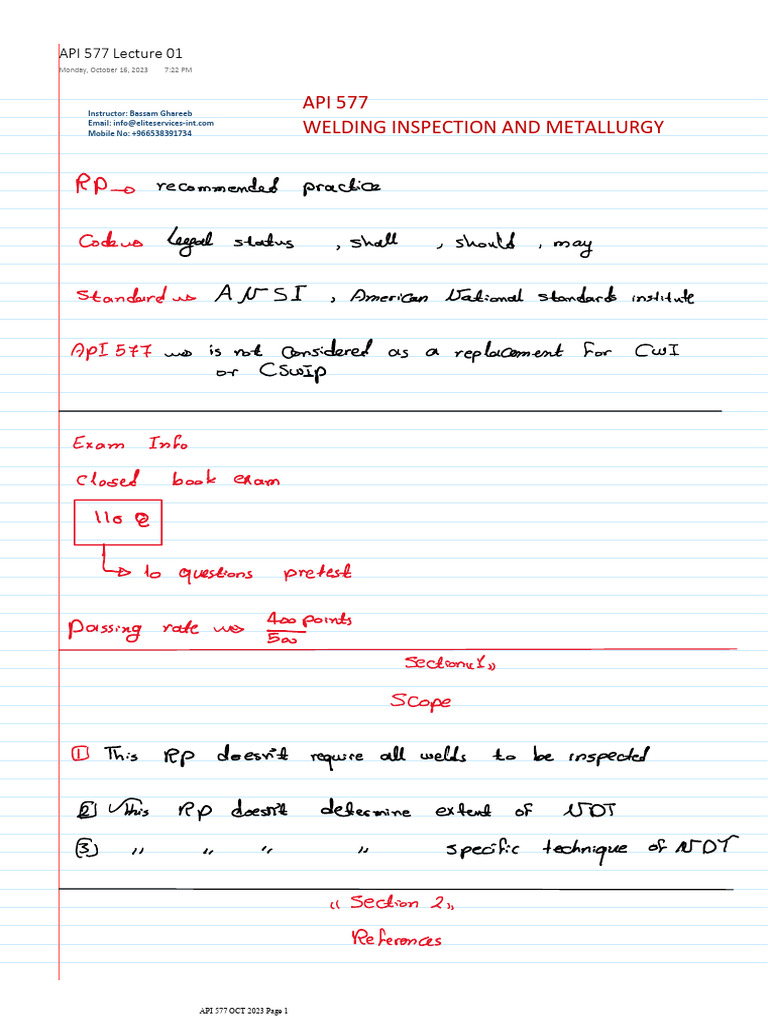 API 577 Lecture 01
Monday, October 16, 2023 7:22 PM
API 577
Instructor: Bassam Ghareeb
Email: info@eliteservices-int.com
WELDING INSPECTION AND METALLURGY
Mobile No: +966538391734
RP → recommended practice
Code → Legal status , shall , should , may
Standard → ANSI , American National standards institute
API 577 → is not Considered as a replacement for CWI
or CSWIP
Exam Info
Closed book exam
110 Q
→ 10 questions pretest
Passing rate → 400 points
500
Section "1"
Scope
① This RP doesn't require all welds to be inspected
② This RP doesn't determine extent of NDT
(3) " " " " specific technique of NDT
"Section 2"
References
API 577 OCT 2023 Page 1